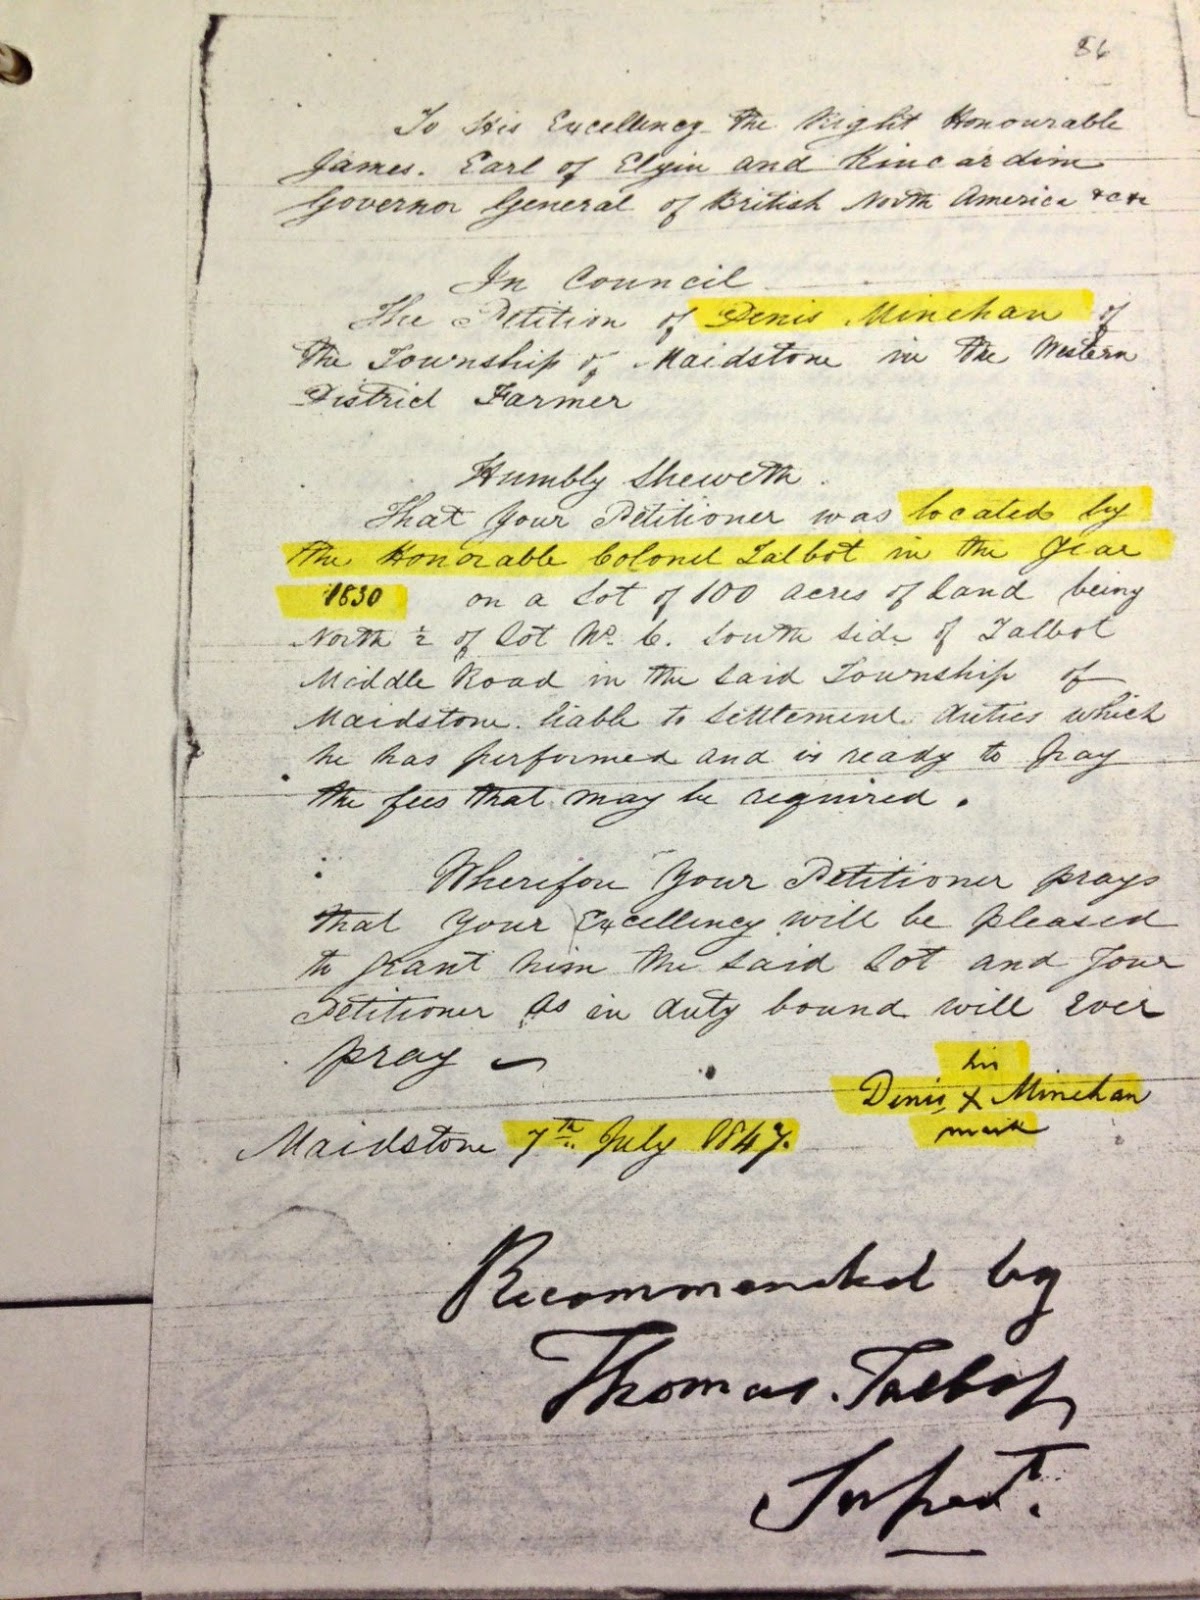 86
To His Excellency the Right Honourable
James. Earl of Elgin and Kincardine
Governor General of British North America &c &c
In Council
The Petition of Denis Minehan of
the Township of Maidstone in the Western
District Farmer
Humbly Sheweth.
That Your Petitioner was located by
the Honorable Colonel Talbot in the Year
1830 on a Lot of 100 acres of Land being
North ½ of Lot No. 6. South side of Talbot
Middle Road in the said Township of
Maidstone. liable to settlement duties which
he has performed and is ready to pay
the fees that may be required.
Wherefore Your Petitioner prays
that Your Excellency will be pleased
to grant him the said Lot and Your
Petitioner as in duty bound will Ever
pray
his
Denis X Minehan
mark
Maidstone 7th. July 1847.
Recommended by
Thomas. Talbot